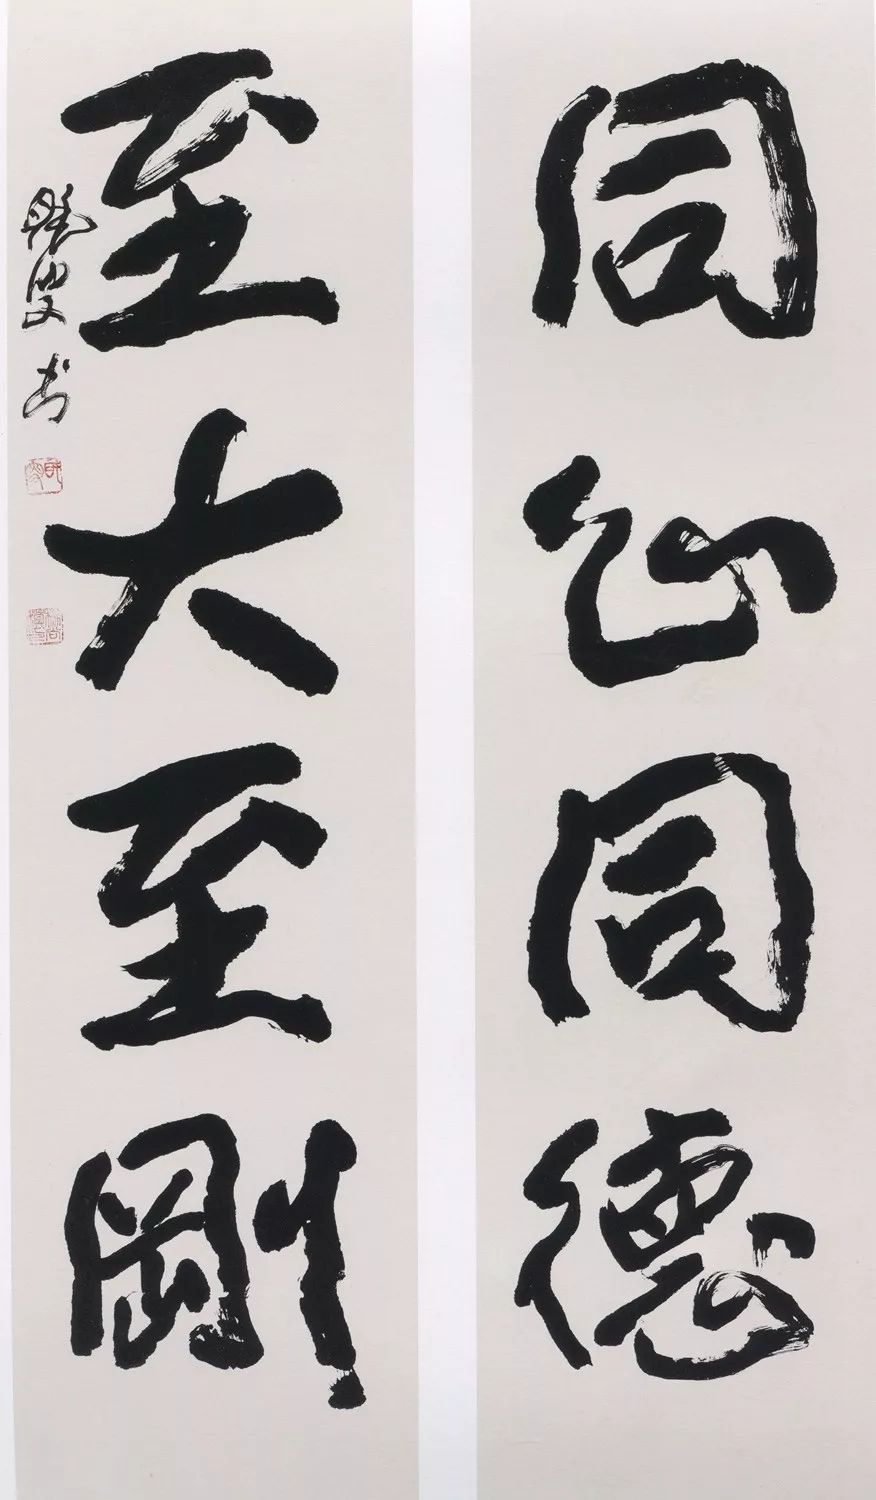 同心同德
至大至剛